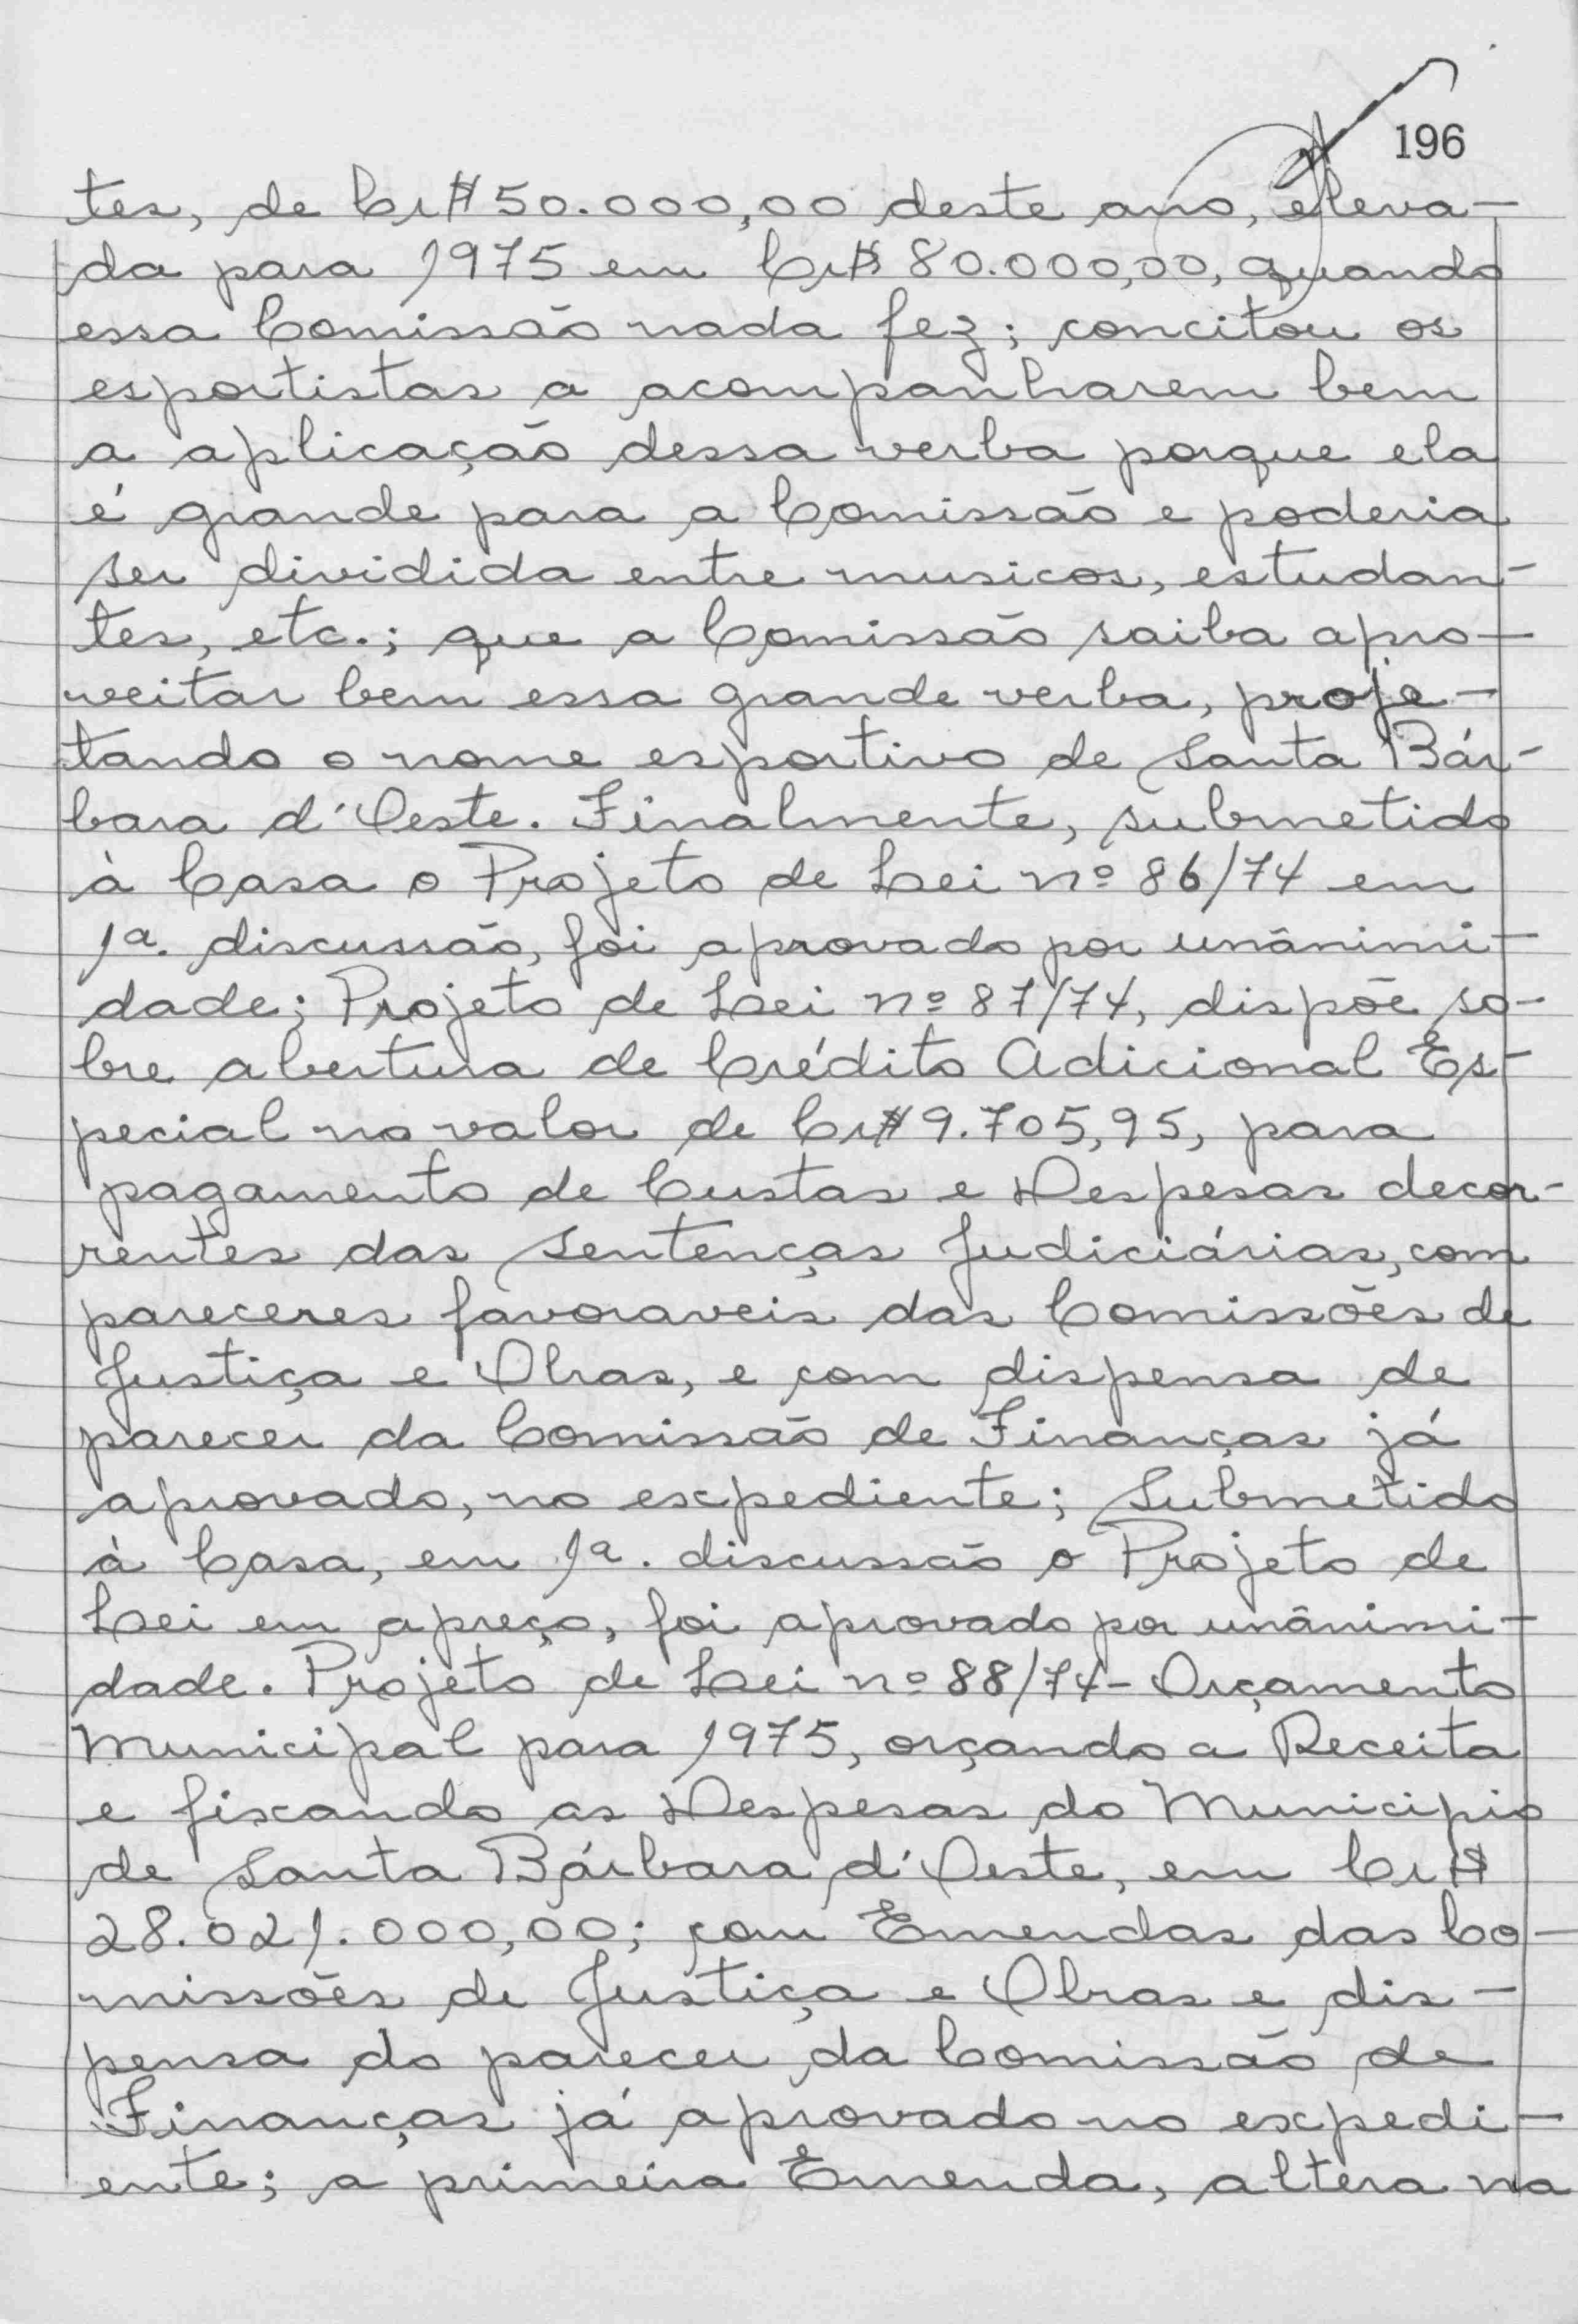 196
tes, de Cr$ 50.000,00 deste ano, eleva-
da para 1975 em Cr$ 80.000,00, quando
essa Comissão nada fez; concitou os
esportistas a acompanharem bem
a aplicação dessa verba porque ela
é grande para a Comissão e poderia
ser dividida entre musicos, estudan-
tes, etc.; que a Comissão saiba apro-
veitar bem essa grande verba, proje-
tando o nome esportivo de Santa Bár-
bara d'Oeste. Finalmente, submetido
à Casa o Projeto de Lei nº 86/74 em
1ª. discussão, foi aprovado por unânimi-
dade; Projeto de Lei nº 87/74, dispõe so-
bre abertura de Crédito Adicional Es-
pecial no valor de Cr$ 9.705,95, para
pagamento de Custas e Despesas decor-
rentes das Sentenças Judiciárias, com
pareceres favoraveis das Comissões de
Justiça e Obras, e com dispensa de
parecer da Comissão de Finanças já
aprovado, no expediente; Submetido
à Casa, em 1ª. discussão o Projeto de
Lei em apreço, foi aprovado por unânimi-
dade. Projeto de Lei nº 88/74 - Orçamento
Municipal para 1975, orçando a Receita
e fixando as Despesas do Municipio
de Santa Bárbara d'Oeste, em Cr$
28.021.000,00; com Emendas das Co-
missões de Justiça e Obras e dis-
pensa do parecer da Comissão de
Finanças já aprovado no expedi-
ente; a primeira Emenda, altera na